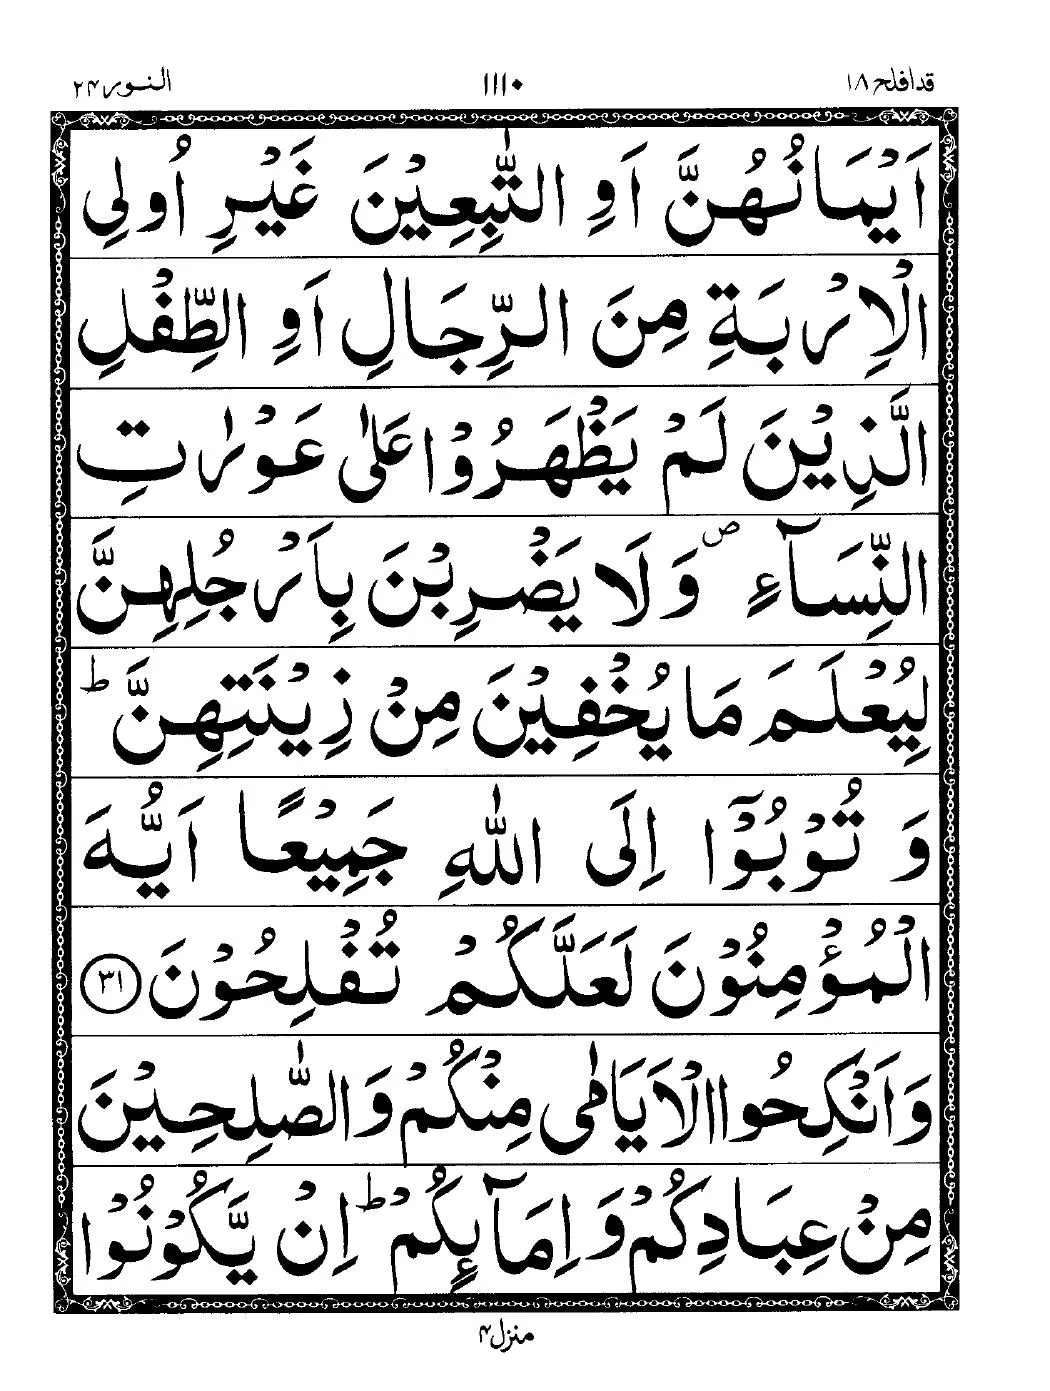 قد افلح ١٨
١١١٠
النور ٢٤
اَيْمَانُهُنَّ اَوِ التّٰبِعِيْنَ غَيْرِ اُولِي
الْاِرْبَةِ مِنَ الرِّجَالِ اَوِ الطِّفْلِ
الَّذِيْنَ لَمْ يَظْهَرُوْا عَلٰى عَوْرٰتِ
النِّسَآءِ ۪ وَلَا يَضْرِبْنَ بِاَرْجُلِهِنَّ
لِيُعْلَمَ مَا يُخْفِيْنَ مِنْ زِيْنَتِهِنَّ ؕ
وَ تُوْبُوْۤا اِلَى اللّٰهِ جَمِيْعًا اَيُّهَ
الْمُؤْمِنُوْنَ لَعَلَّكُمْ تُفْلِحُوْنَ ﴿٣١﴾
وَاَنْكِحُوا الْاَيَامٰى مِنْكُمْ وَالصّٰلِحِيْنَ
مِنْ عِبَادِكُمْ وَاِمَآىِٕكُمْ ؕ اِنْ يَّكُوْنُوْا
منزل ٤